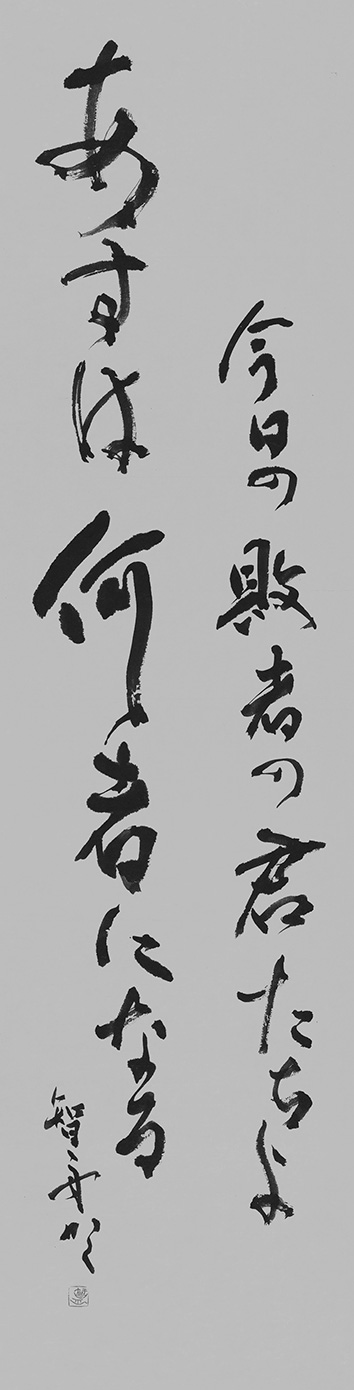 今日の敗者の君たちよ
あすは何者になる